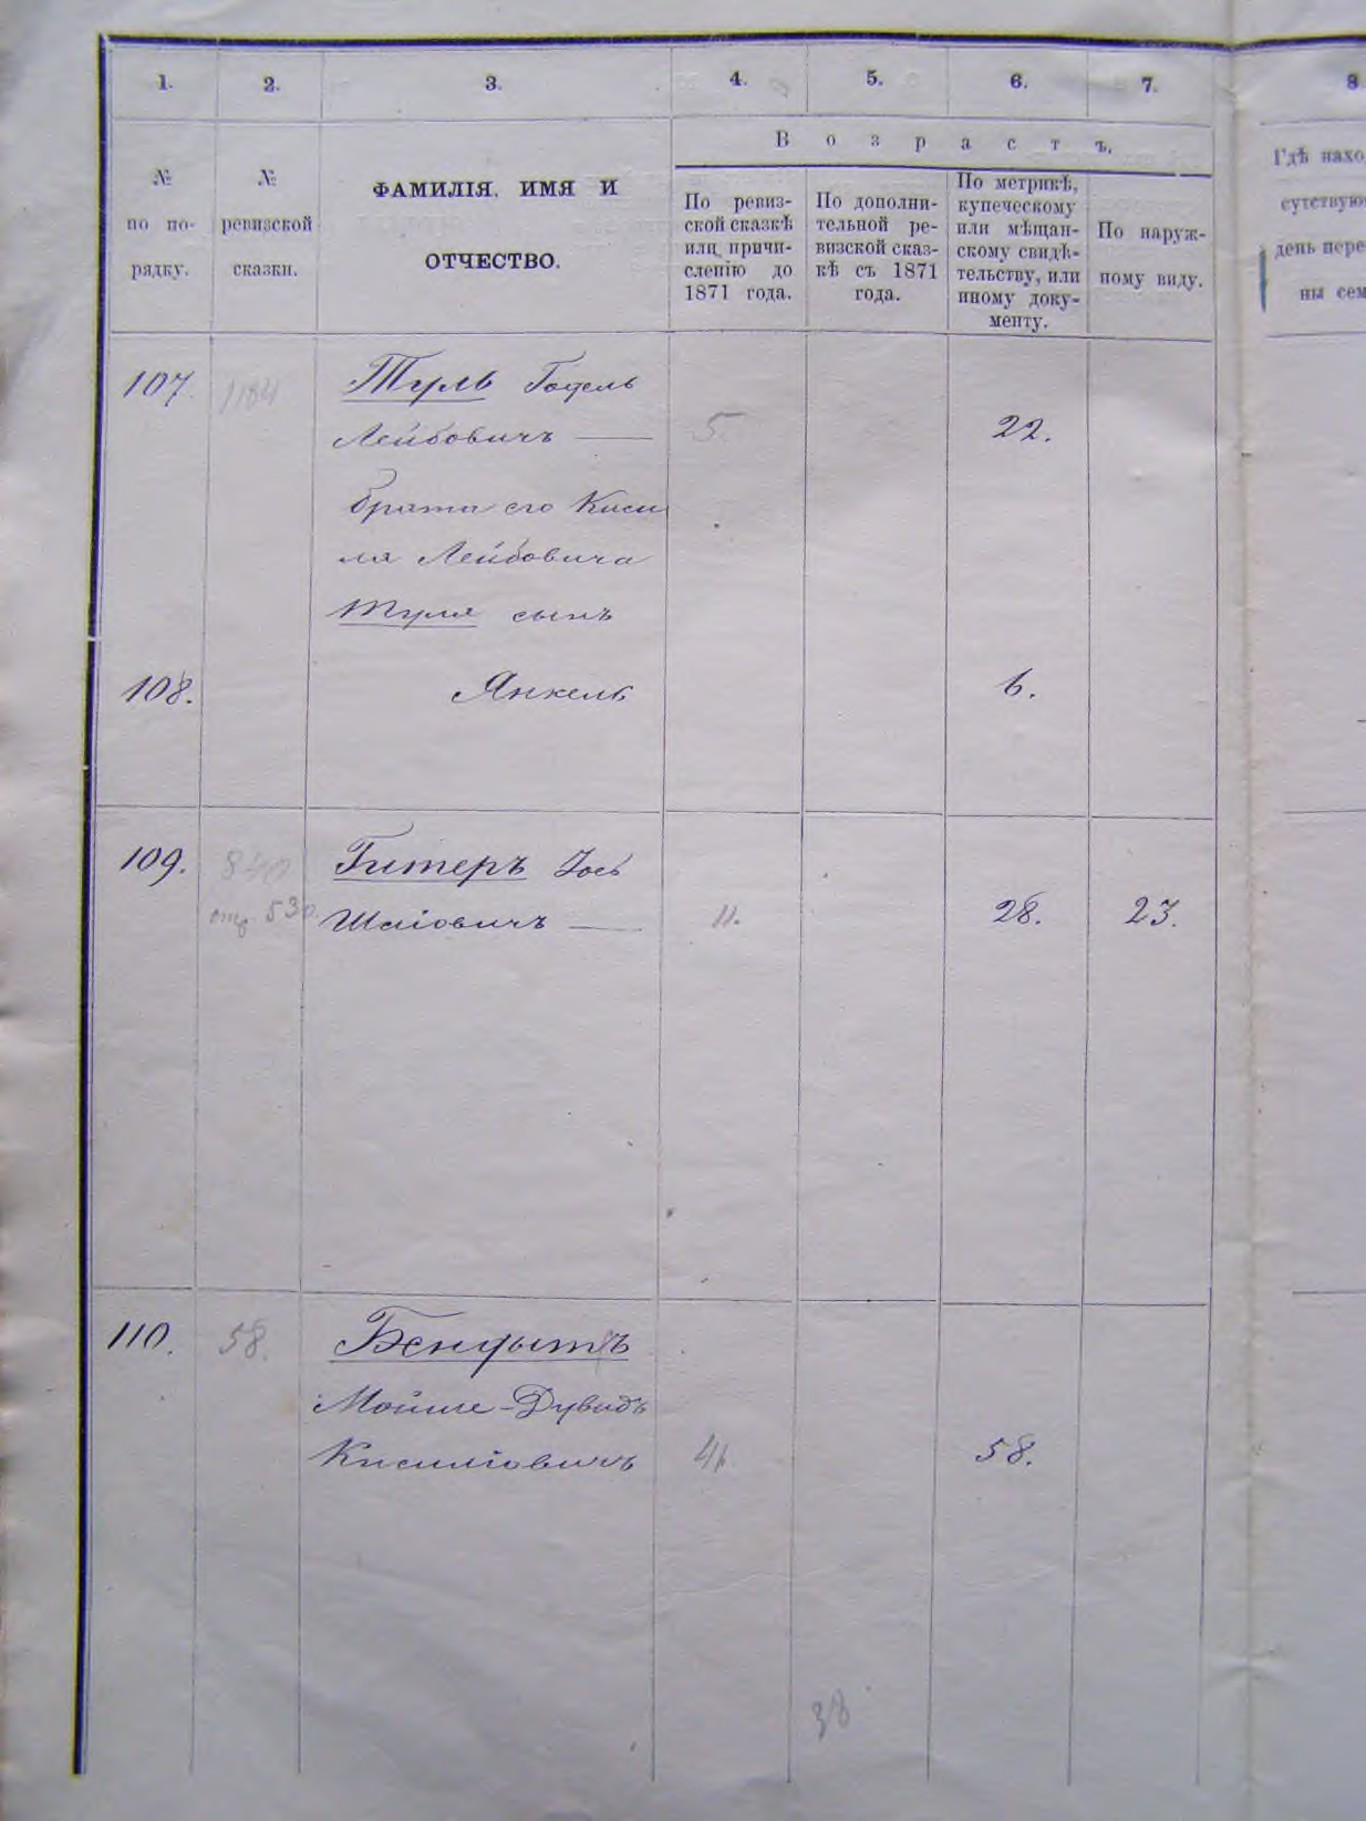 1. 2. 3. 4. 5. 6. 7. 8
№ по по- рядку.
№ ревизской сказки.
ФАМИЛІЯ, ИМЯ И
ОТЧЕСТВО.
Возрастъ,
По ревиз-
ской сказкѣ
или причи-
сленію до
1871 года.
По дополни-
тельной ре-
визской сказ-
кѣ съ 1871
года.
По метрикѣ,
купеческому
или мѣщан-
скому свидѣ-
тельству, или
иному доку-
менту.
По наруж-
ному виду.
Гдѣ нахо
сутствую
день пере
ны сем
107. 1184 Туль Гоцель
Лейбовичъ — 5. 22.
брата его Киси
ля Лейбовича
Туля сынъ
108. Янкель 6.
109. 840 Гитеръ Іось
отр. 530. Шаіовичъ — 11. 28. 23.
110. 58. Бенцытъ
Мойше-Дувидъ
Кисиліовичъ 41. 58.
38